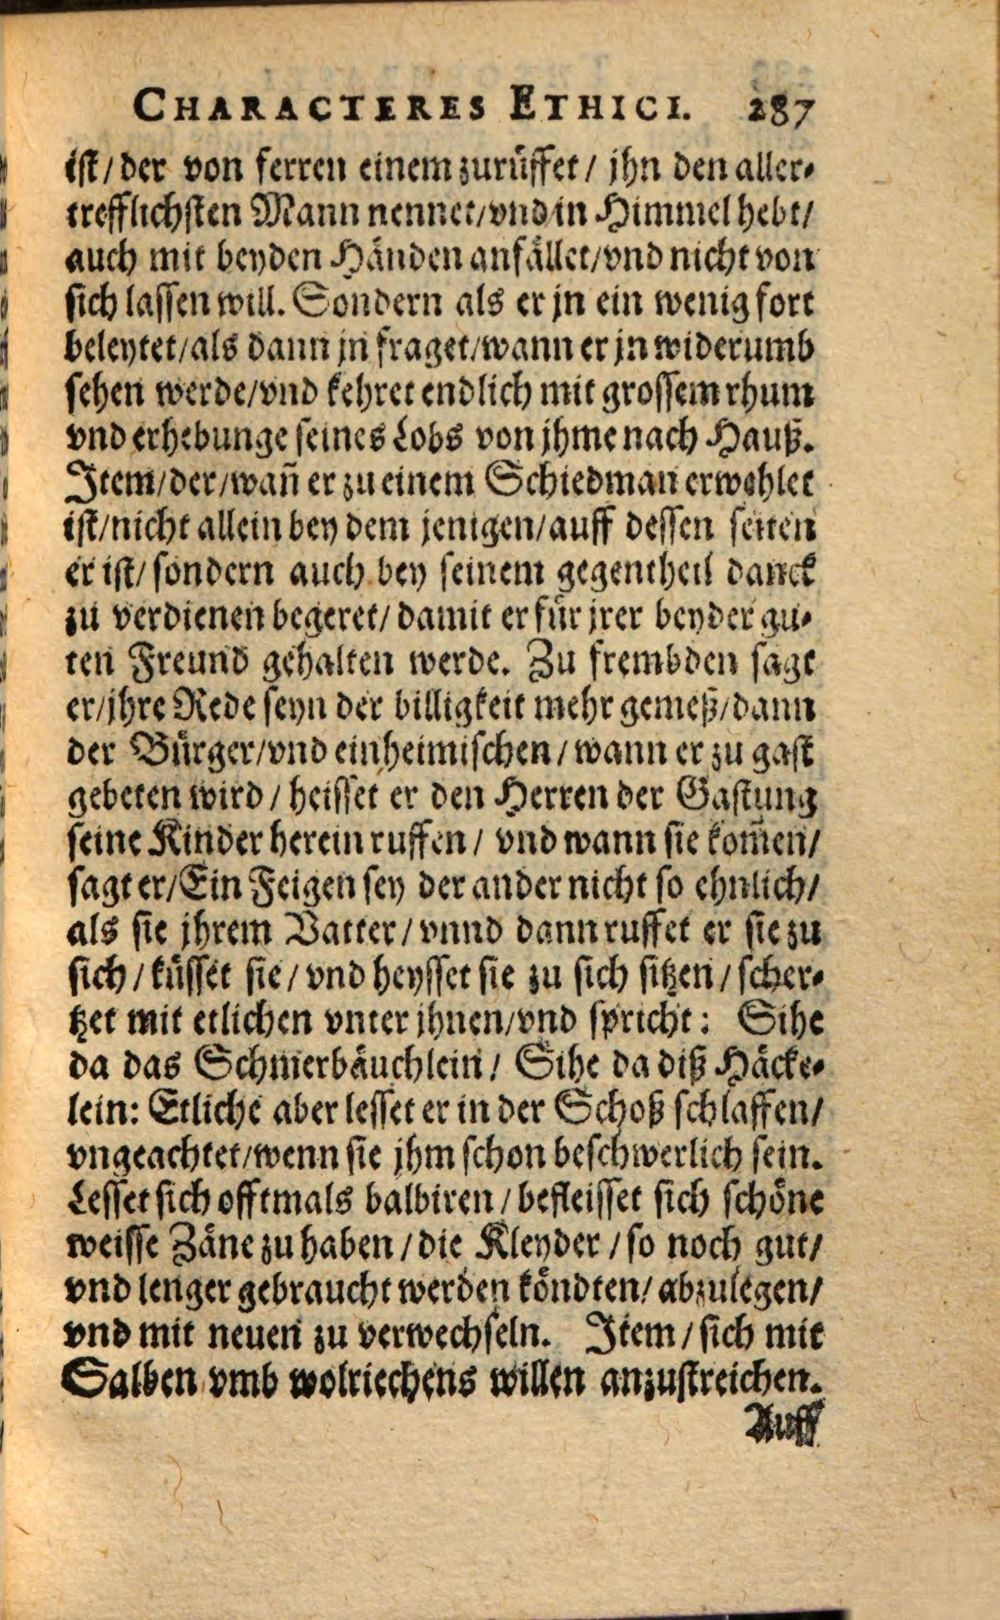 CHARACTERES ETHICI. 287
ist/der von ferren einem zurüffet/ jhn den aller-
trefflichsten Mann nennet/vnd in Himmel hebt/
auch mit beyden Händen anfället/vnd nicht von
sich lassen will. Sondern als er jn ein wenig fort
beleytet/als dann jn fraget/wann er jn widerumb
sehen werde/vnd kehret endlich mit grossem rhum
vnd erhebunge seines Lobs von jhme nach Hauß.
Item/der/wañ er zu einem Schiedman erwehlet
ist/nicht allein bey dem jenigen/auff dessen seiten
er ist/sondern auch bey seinem gegentheil danck
zu verdienen begeret/damit er für jrer beyder gu-
ten Freund gehalten werde. Zu frembden sagt
er/jhre Rede seyn der billigkeit mehr gemeß/dann
der Bürger/vnd einheimischen/wann er zu gast
gebeten wird/heisset er den Herren der Gastung
seine Kinder herein ruffen/ vnd wann sie kom̃en/
sagt er/Ein Feigen sey der ander nicht so ehnlich/
als sie jhrem Vatter/vnnd dann ruffet er sie zu
sich/küsset sie/vnd heysset sie zu sich sitzen/scher-
tzet mit etlichen vnter jhnen/vnd spricht: Sihe
da das Schmerbäuchlein/ Sihe da diß Häcke-
lein: Etliche aber lesset er in der Schoß schlaffen/
vngeachtet/wenn sie jhm schon beschwerlich sein.
Lesset sich offtmals balbiren/befleisset sich schöne
weisse Zäne zu haben/die Kleyder/so noch gut/
vnd lenger gebraucht werden köndten/abzulegen/
vnd mit neuen zu verwechseln. Item/sich mit
Salben vmb wolriechens willen anzustreichen.
Auff